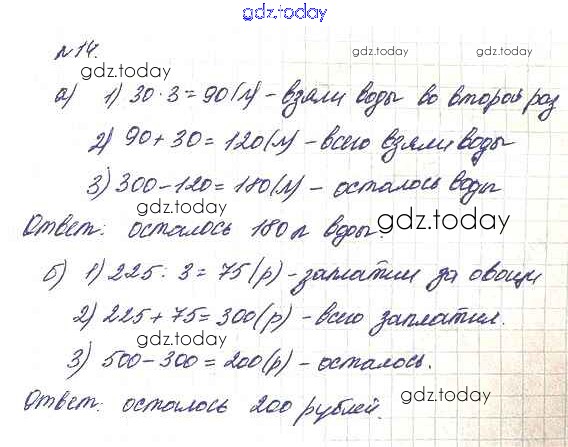 gdz.today
№14.
gdz.today
gdz.today
gdz.today
а) 1) 30·3=90(л)-взяли воды во второй раз
2) 90+30=120(л)-всего взяли воды
gdz.today
gdz.today
3) 300-120=180(л)-осталось воды
gdz.today
gdz.today
Ответ: осталось 180 л воды.
б) 1) 225:3=75(р)-заплатил за овощи
gdz.today
2) 225+75=300(р)-всего заплатил.
gdz.today
3) 500-300=200(р)-осталось.
gdz.today
gdz.today
Ответ: осталось 200 рублей.
gdz.today